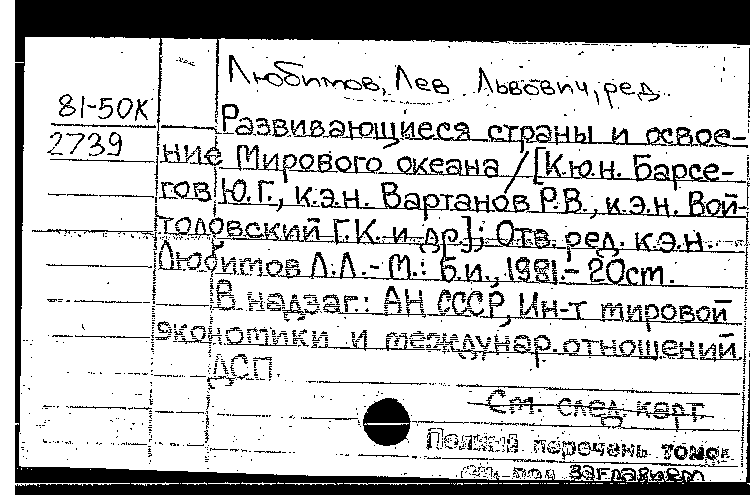 Любимов, Лев Львович, ред.
81-50К
2739
Развивающиеся страны и освое-
ние Мирового океана / [К.ю.н. Барсе-
гов Ю.Г., к.э.н. Вартанов Р.В., к.э.н. Вой-
толовский Г.К. и др.]; Отв. ред. к.э.н.
Любимов Л.Л. - М.: Б.и., 1981.- 20 ст.
В надзаг.: АН СССР, Ин-т мировой
экономики и междунар. отношений.
ДСП.
См. след. карт.
Полный перечень томов
см. под заглавием